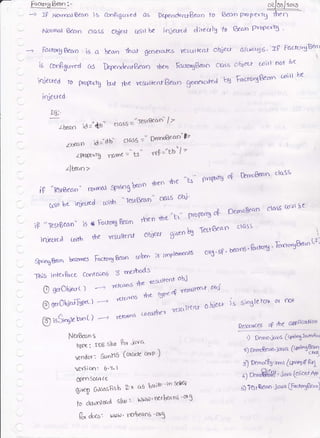 FactoryBean :-
02/03/2013
→ If NormalBean is configured as DependentBean to Bean property then
Normal Bean class object will be injected directly to Bean Property.
→ FactoryBean is a bean that generates resultant object always. If FactoryBean
is configured as DependentBean then FactoryBean class object will not be
injected to property but the resultant Bean generated by FactoryBean will be
injected
Eg:-
<bean id="tb" class="TestBean"/>
<bean id="db" class="DemoBean">
<property name="t1" ref="tb"/>
</bean>
if "TestBean" normal spring bean then the "t1" property of DemoBean class
will be injected with "TestBean" class obj.
if "TestBean" is a Factory Bean then the "t1" property of DemoBean class will be
injected with the resultant object given by TestBean class
SpringBean becomes FactoryBean when it implements org.sf.beans.factory.FactoryBean
This interface contains 3 methods
① getObject() → returns the resultant obj
② getObjectType() → returns the type of resultant obj
③ isSingleton() → returns whether resultant object is singleton or not
NetBeans
type : IDE s/w for Java
vendor : SunMS (oracle corp.)
version : 6.7.1
opensource
gives Glassfish 2.x as built-in server
to download s/w : www.netbeans.org
for docs : www.netbeans.org
Resources of the application
1) Demo.java
2) DemoBean.java
3)
4) Java (client App
5) TestBean.java (FactoryBean)